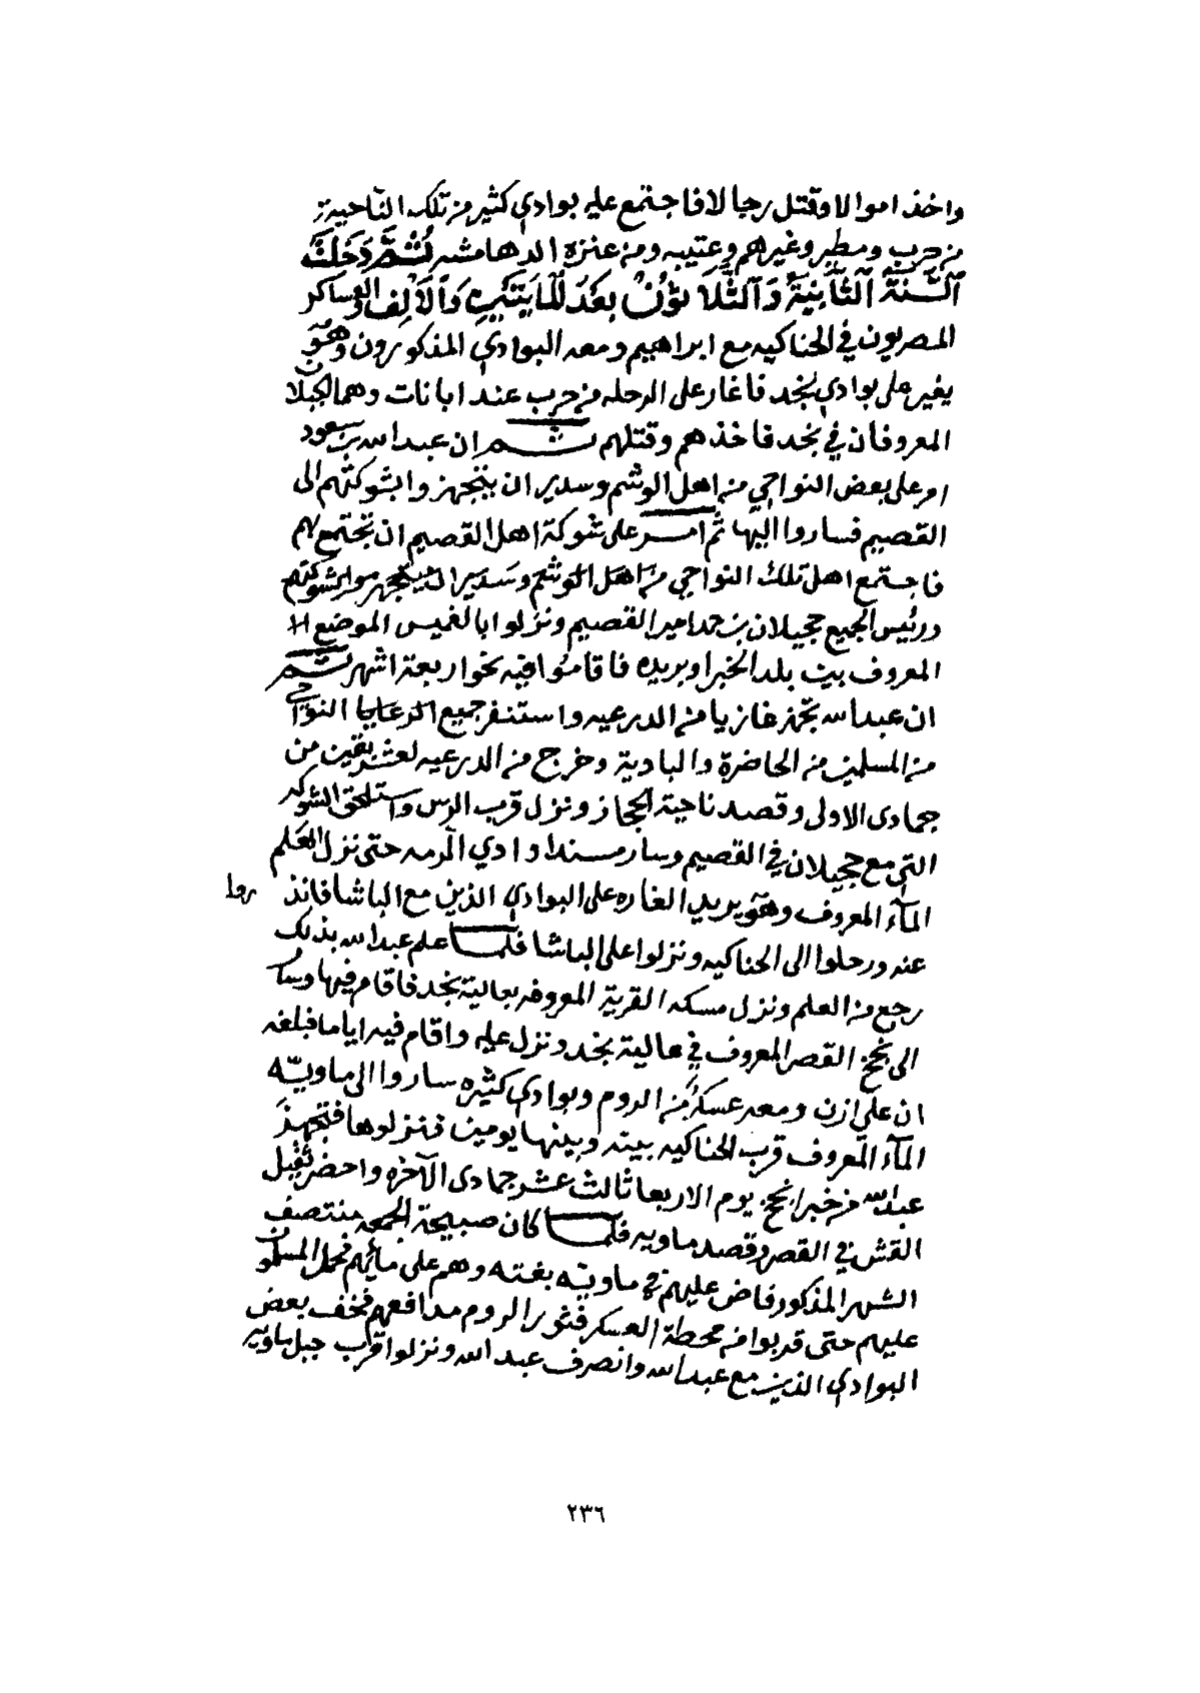 واخذ اموالا وقتل رجالا فاجتمع عليه بوادي كثير من تلك الناحية
من حرب ومطير وغيرهم وعتيبه ومن عنزه الدهامشه ثُمَّ دَخَلَت
اَلسَّنَةُ اَلثَّانِيَةُ وَاَلثَّلَاثُوْنْ بَعْدَ اَلْمَايَتَيْنِ وَاَلْأَلْفْ والعساكر
المصريون في الحناكيه مع ابراهيم ومعه البوادي المذكورون وهو
يغير على بوادي نجد فاغار على الرحله من حرب عند ابانات وهما الجبلان
المعروفان في نجد فاخذهم وقتلهم ثم ان عبدالله بن سعود
امر على بعض النواحي من اهل الوشم وسدير ان يتجهزوا بشوكتهم الى
القصيم فساروا اليها ثم امر على شوكة اهل القصيم ان تجتمع بهم
فاجتمع اهل تلك النواحي من اهل الوشم وسدير ان يتجهزوا بشوكتهم
ورئيس الجميع حجيلان بن حمد امير القصيم ونزلوا بالغميس الموضع
المعروف بين بلد الخبرا وبريده فاقاموا فيه نحو اربعة اشهر ثم
ان عبدالله تجهز غازيا من الدرعيه واستنفر جميع الرعايا النواحي
من المسلمين من الحاضرة والبادية وخرج من الدرعيه لعشر بقين من
جمادى الاولى وقصد ناحية الحجاز ونزل قرب الرس واستلحق الشوكه
التي مع حجيلان في القصيم وسار مسندا وادي الرمه حتى نزل العلم
المآء المعروف وهو يريد الغاره على البوادي الذين مع الباشا فانذروا
عنه ورحلوا الى الحناكيه ونزلوا على الباشا فلما علم عبدالله بذلك
رجع من العلم ونزل مسكه القرية المعروفه بعالية نجد فاقام فيها وسار
الى نجخ القصر المعروف في عالية نجد ونزل عليه واقام فيه اياما فبلغه
ان علي ازن ومعه عسكرٌ من الروم وبوادي كثيره ساروا الى ماويّه
المآء المعروف قرب الحناكيه بينه وبينها يومين فنزلوها فتجهز
عبدالله من خبر انجخ يوم الاربعا ثالث عشر جمادى الآخره واحضر ثقيل
القش في القصر وقصد ماويه فلما كان صبيحة الجمعه منتصف
الشهر المذكور فاض عليهم في ماويّه بغته وهم على مائهم فحمل المسلمون
عليهم حتى قربوا من محطة العسكر فثور الروم مدافعهم فخف بعض
البوادي الذين مع عبدالله وانصرف عبدالله ونزلوا قرب جبل ماويه
٢٣٦